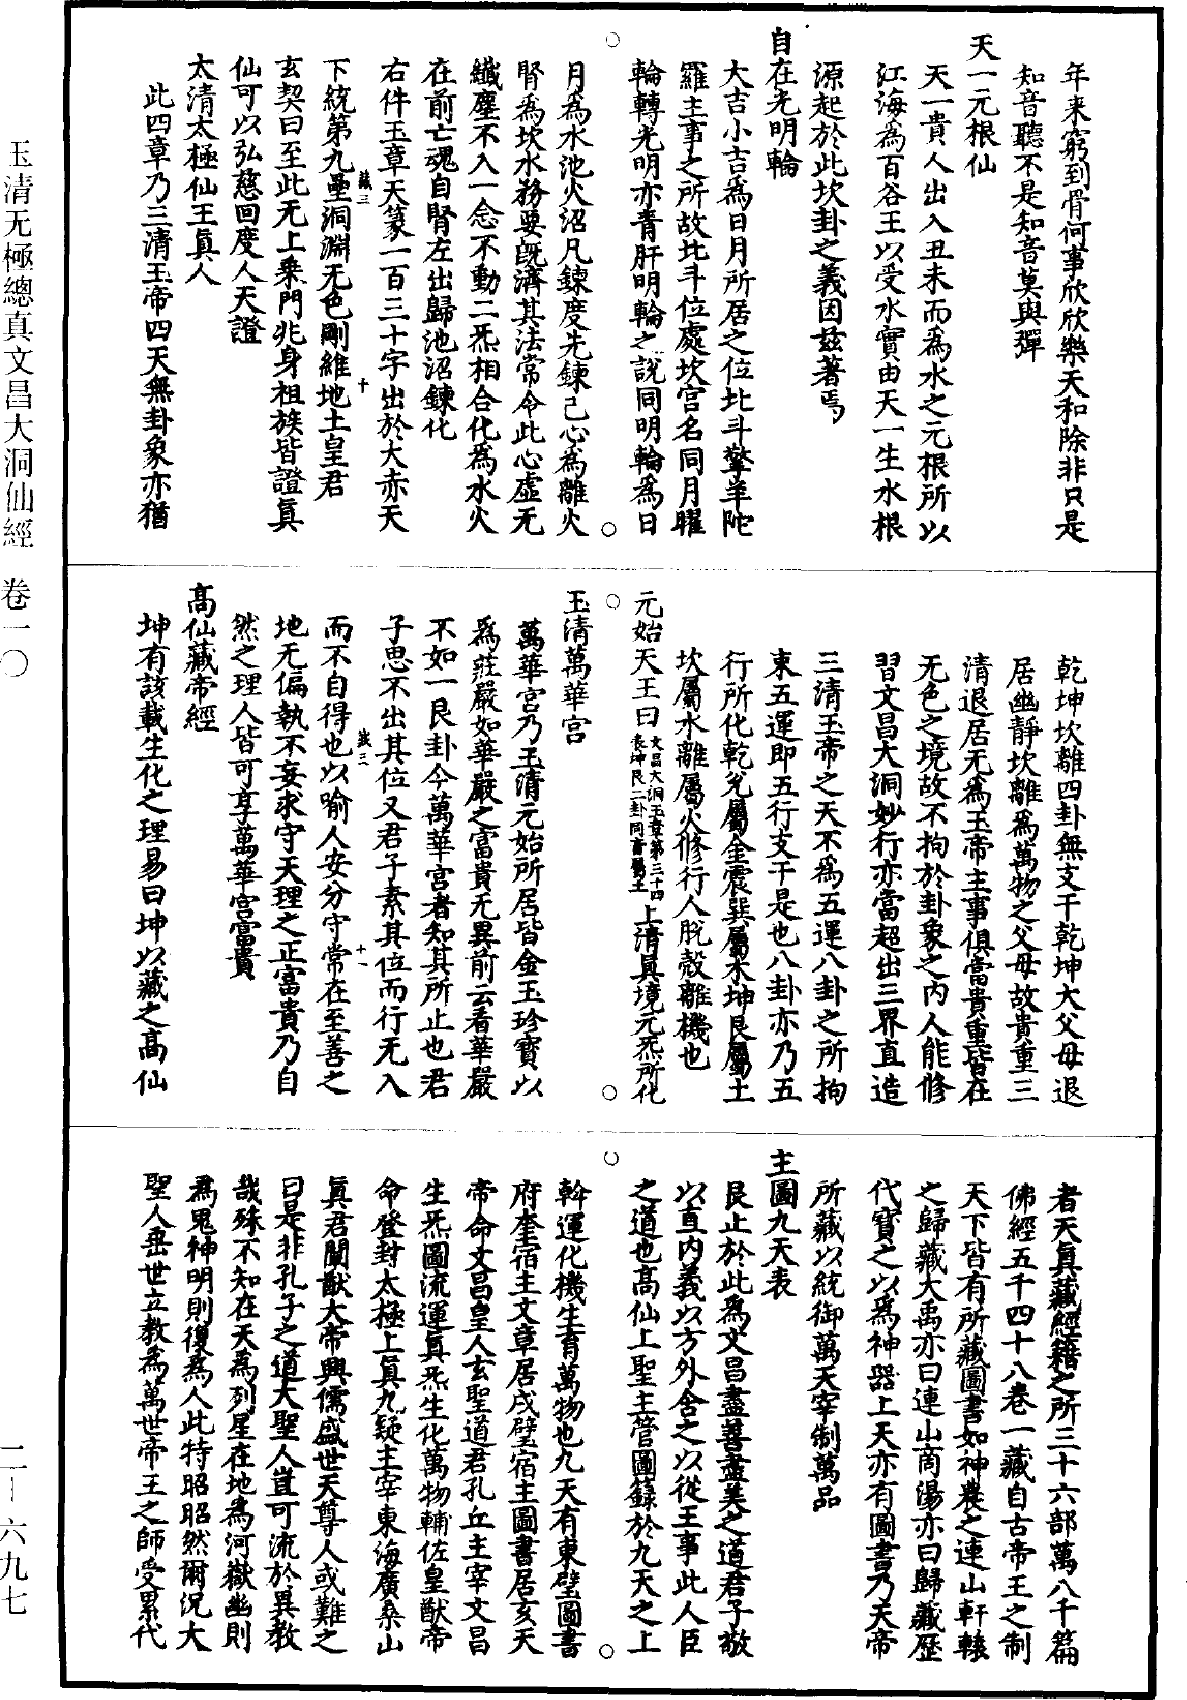 年来窮到骨何事欣欣樂天和除非只是
知音聽不是知音莫與彈
天一元根仙
天一貴人出入丑未而為水之元根所以
江海為百谷王以受水實由天一生水根
源起於此坎卦之義因玆著焉
自在光明輪
大吉小吉為日月所居之位北斗擎羊陀
羅主事之所故北斗位處坎宮名同月曜
輪轉光明亦青肝明輪之說同明輪為日
月為水池火沼凡鍊度先鍊己心為離火
腎為坎水務要旣濟其法常令此心虛无
纖塵不入一念不動二炁相合化為水火
在前亡魂自腎左出歸池沼鍊化
右件玉章天篆一百三十字出於大赤天
藏三
十
下統第九壘洞淵无色剛維地土皇君
玄契曰至此无上乘門兆身祖族皆證眞
仙可以弘慈回度人天證
太清太極仙王眞人
此四章乃三清玉帝四天無卦象亦猶
乾坤坎離四卦無支干乾坤大父母退
居幽靜坎離為萬物之父母故貴重三
清退居无為玉帝主事俱當貴重皆在
无色之境故不拘於卦象之内人能修
習文昌大洞妙行亦當超出三界直造
三清玉帝之天不為五運八卦之所拘
束五運即五行支干是也八卦亦乃五
行所化乾兊屬金震巽屬木坤艮屬土
坎屬水離屬火修行人脫殼離機也
元始天王曰文昌大洞玉章第三十四表坤艮二卦同音屬土上清眞境元炁所化
玉清萬華宮
萬華宮乃玉清元始所居皆金玉珍寶以
為莊嚴如華嚴之富貴无異前云看華嚴
不如一艮卦今萬華宮者知其所止也君
子思不出其位又君子素其位而行无入
藏三
十一
而不自得也以喻人安分守常在至善之
地无偏執不妄求守天理之正富貴乃自
然之理人皆可享萬華宮富貴
高仙藏帝經
坤有該載生化之理易曰坤以藏之高仙
者天眞藏經籍之所三十六部萬八千篇
佛經五千四十八卷一藏自古帝王之制
天下皆有所藏圖書如神農之連山軒轅
之歸藏大禹亦曰連山商湯亦曰歸藏歷
代寶之以為神器上天亦有圖書乃天帝
所藏以統御萬天宰制萬品
主圖九天表
艮止於此為文昌盡善盡美之道君子敬
以直内義以方外含之以從王事此人臣
之道也高仙上聖主管圖籙於九天之上
斡運化機生育萬物也九天有東壁圖書
府奎宿主文章居戌壁宿主圖書居亥天
帝命文昌皇人玄聖道君孔丘主宰文昌
生炁圖流運眞炁生化萬物輔佐皇猷帝
命登封太極上眞九疑主宰東海廣桑山
眞君闡猷大帝興儒盛世天尊人或難之
曰是非孔子之道大聖人豈可流於異教
哉殊不知在天為列星在地為河嶽幽則
為鬼神明則復為人此特昭昭然爾況大
聖人垂世立教為萬世帝王之師受累代
玉清无極總真文昌大洞仙經 卷一〇
二—六九七